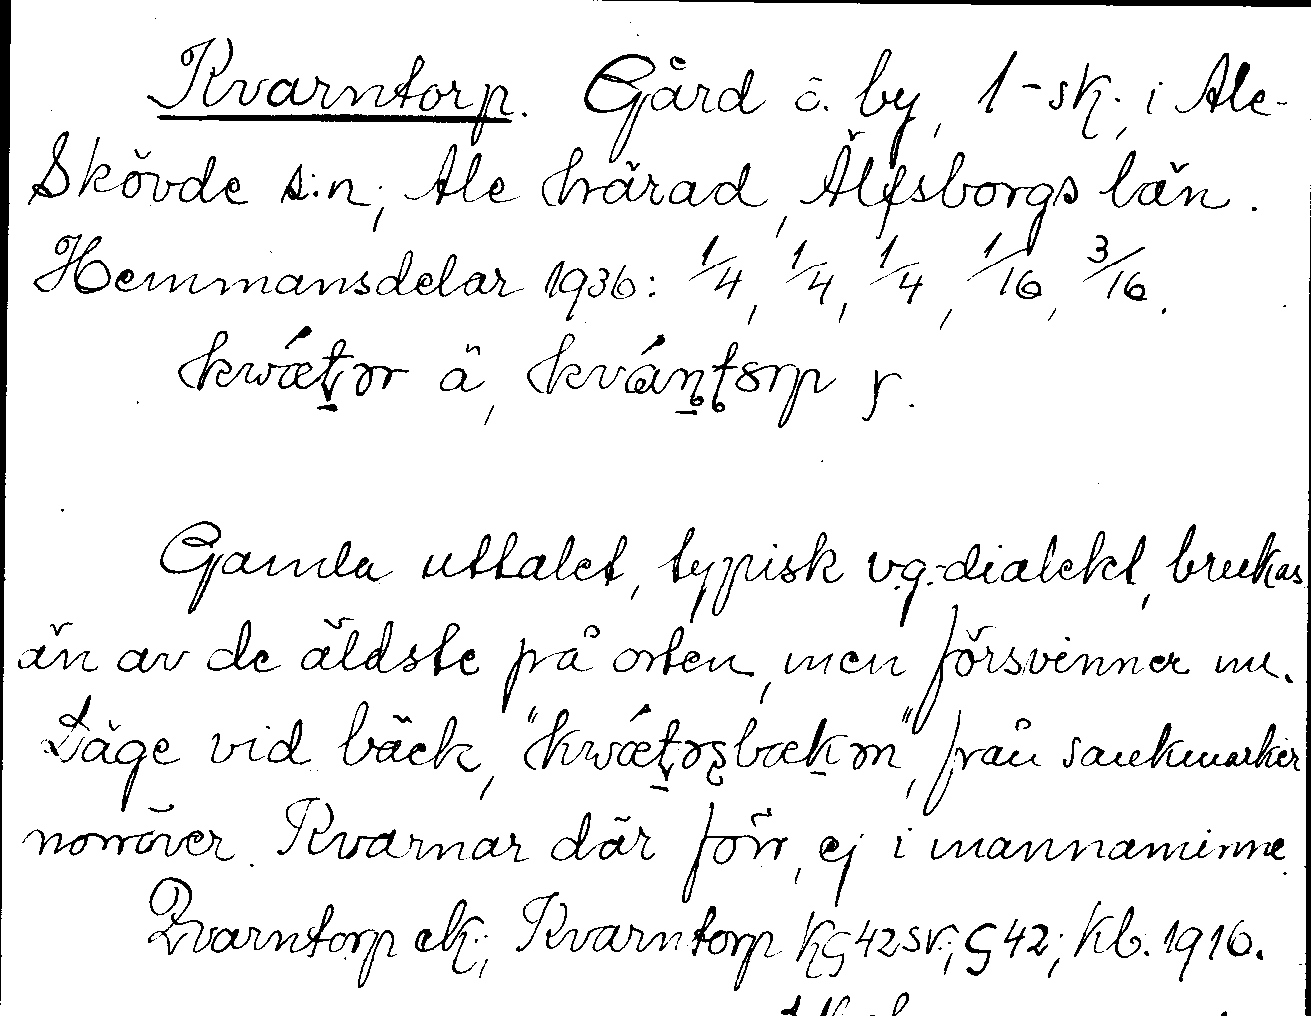 Kvarntorp. Gård o. by, 1-sk., i Ale-
Skövde s:n, Ale härad, Älfsborgs län.
Hemmansdelar 1936: 1/4, 1/4, 1/4, 1/16, 3/16.
kwǽt̠ər ä, kván̠t̠orp y.
Gamla uttalet, typisk v.g.-dialekt, brukas
än av de äldste på orten, men försvinner nu.
Läge vid bäck, "kwǽt̠ərs̠bæk̠ən", från sankmarker
norröver. Kvarnar där förr, ej i mannaminne
Qvarntorp ek.; Kvarntorp Kg 42 sv.; G 42; Kb. 1916.